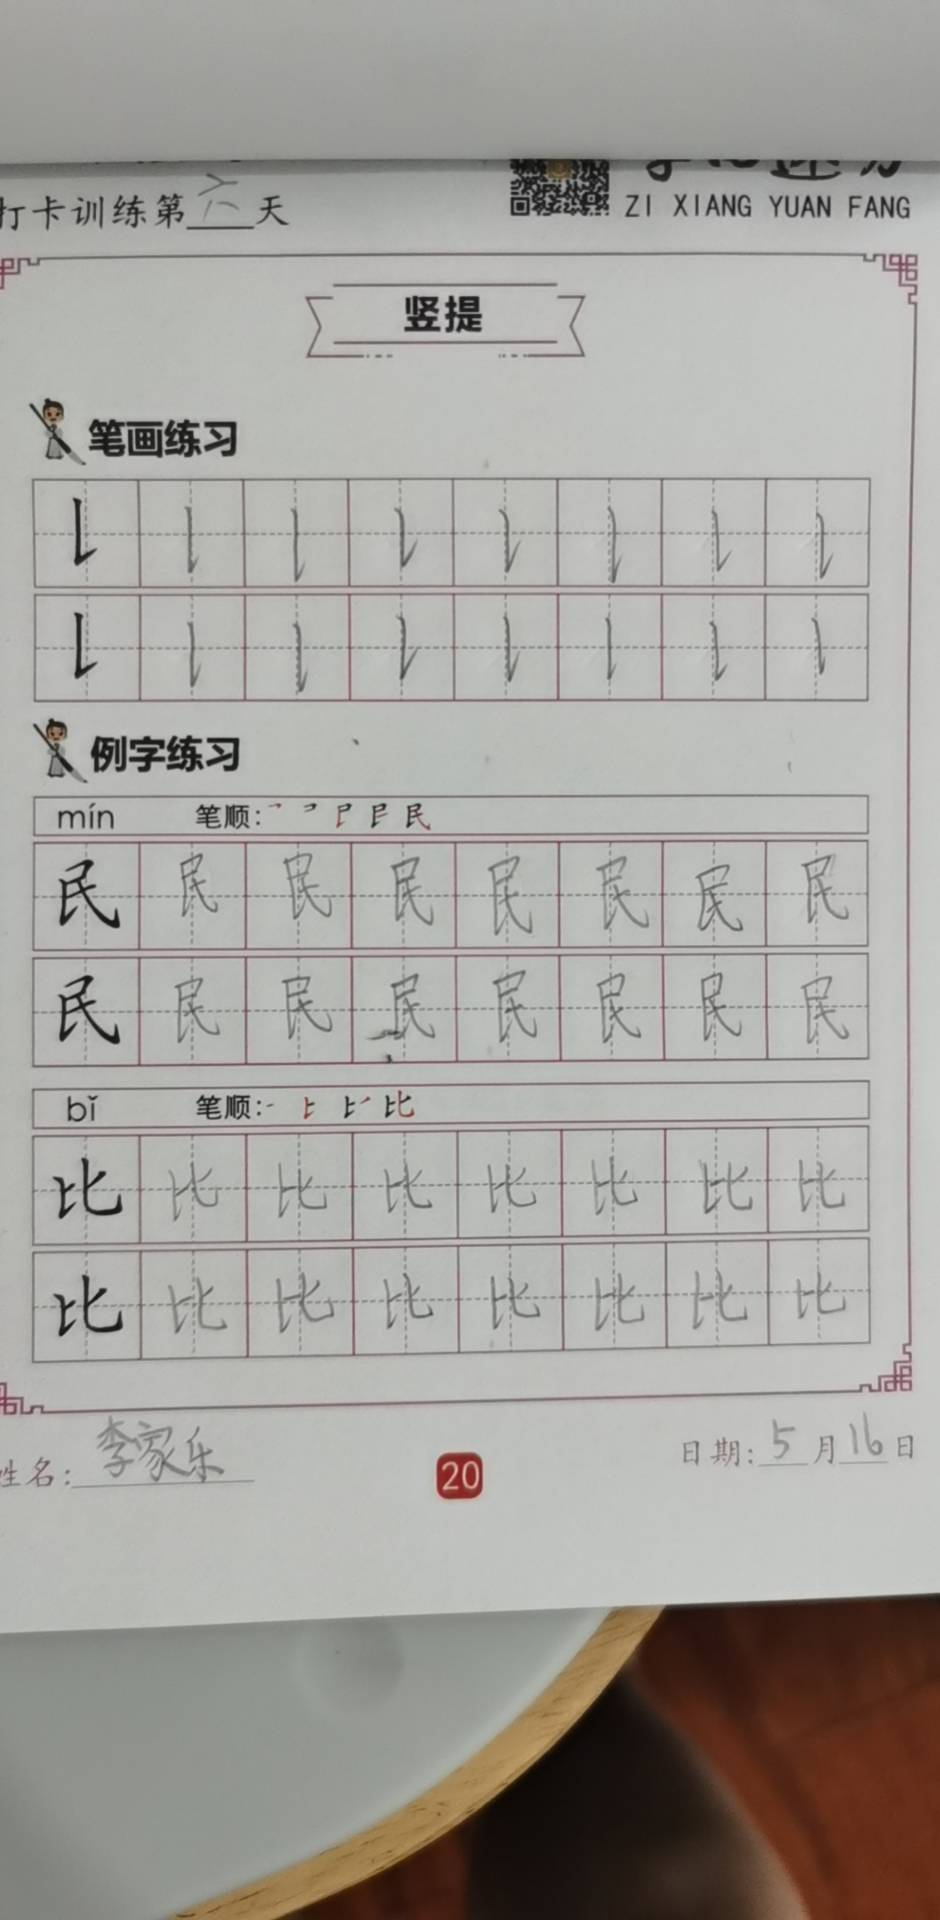 打卡训练第六天
ZI XIANG YUAN FANG
竖提
笔画练习
例字练习
mín 笔顺:
民 民 民 民 民 民 民 民
民 民 民 民 民 民 民 民
bǐ 笔顺:
比 比 比 比 比 比 比 比
比 比 比 比 比 比 比 比
姓名:李家乐
20
日期:5月16日